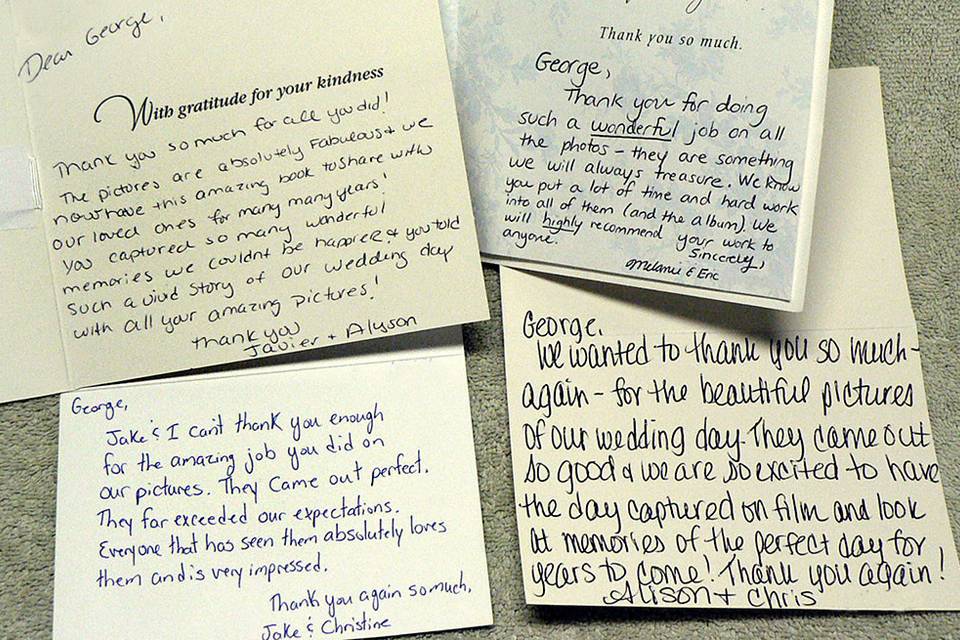 Dear George,
With gratitude for your kindness
Thank you so much for all you did!
The pictures are absolutely Fabulous & we
now have this amazing book to share with
our loved ones for many many years!
You captured so many wonderful
memories we couldnt be happier & you told
such a vivid story of our wedding day
with all your amazing pictures!
thank you
Javier + Alyson
Thank you so much.
George,
Thank you for doing
such a wonderful job on all
the photos - they are something
we will always treasure. We know
you put a lot of time and hard work
into all of them (and the album). We
will highly recommend your work to
anyone.
Sincerely,
Melanie & Eric
George,
Jake & I can't thank you enough
for the amazing job you did on
our pictures. They came out perfect.
They far exceeded our expectations.
Everyone that has seen them absolutely loves
them and is very impressed.
Thank you again so much,
Jake & Christine
George,
We wanted to thank you so much -
again - for the beautiful pictures
of our wedding day. They came out
so good & we are so excited to have
the day captured on film and look
at memories of the perfect day for
years to come! Thank you again!
Alison + Chris